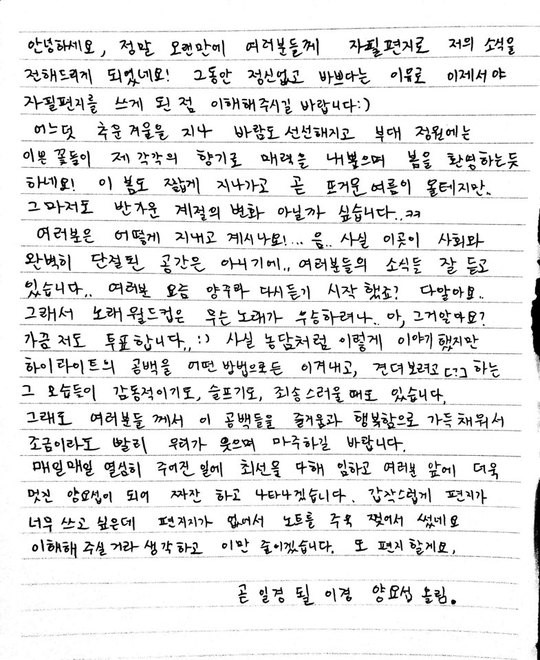 안녕하세요, 정말 오랜만에 여러분들께 자필편지로 저의 소식을
전해드리게 되었네요! 그동안 정신없고 바쁘다는 이유로 이제서야
자필편지를 쓰게 된 점 이해해주시길 바랍니다:)
어느덧 추운 겨울을 지나 바람도 선선해지고 부대 정원에는
이쁜 꽃들이 제 각각의 향기로 매력을 내뿜으며 봄을 환영하는듯
하네요! 이 봄도 짧게 지나가고 곧 뜨거운 여름이 올테지만..
그마저도 반가운 계절의 변화 아닐까 싶습니다..ㅋㅋ
여러분은 어떻게 지내고 계시나요!... 음.. 사실 이곳이 사회와
완벽히 단절된 공간은 아니기에.. 여러분들의 소식들 잘 듣고
있습니다.. 여러분 요즘 양주파 다시듣기 시작 했죠? 다알아요..
그래서 노래 월드컵은 무슨 노래가 우승하려나.. 아, 그거알아요?
가끔 저도 투표합니다.. :) 사실 농담처럼 이렇게 이야기 했지만
하이라이트의 공백을 어떤 방법으로든 이겨내고, 견뎌보려고[?] 하는
그 모습들이 감동적이기도, 슬프기도, 죄송스러울 때도 있습니다.
그래도 여러분들 께서 이 공백들을 즐거움과 행복함으로 가득채워서
조금이라도 빨리 우리가 웃으며 마주하길 바랍니다.
매일매일 열심히 주어진 일에 최선을 다해 임하고 여러분 앞에 더욱
멋진 양요섭이 되어 짜잔 하고 나타나겠습니다. 갑작스럽게 편지가
너무 쓰고 싶은데 편지지가 없어서 노트를 주욱 찢어서 썼네요
이해해 주실거라 생각하고 이만 줄이겠습니다. 또 편지 할게요.
곧 일경 될 이경 양요섭 올림.